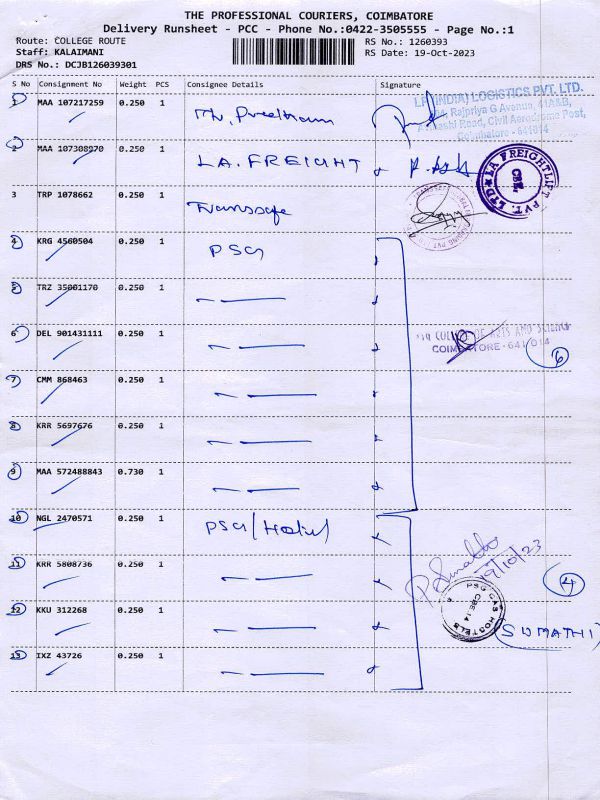 THE PROFESSIONAL COURIERS, COIMBATORE
Delivery Runsheet - PCC - Phone No.:0422-3505555 - Page No.:1
Route: COLLEGE ROUTE RS No.: 1260393
Staff: KALAIMANI RS Date: 19-Oct-2023
DRS No.: DCJB126039301
S No Consignment No Weight PCS Consignee Details Signature
1 MAA 107217259 0.250 1
(INDIA) LOGISTICS PVT. LTD.
Rajpriya G Avenue, 41A&B,
Road, Civil Aerodrome Post,
Coimbatore - 641014
2 MAA 107308970 0.250 1 L.A. FREIGHT
LA FREIGHTLIFT PVT. LTD CBE.
3 TRP 1078662 0.250 1 Transsafe
4 KRG 4560504 0.250 1 PSG
5 TRZ 35001170 0.250 1
6 DEL 901431111 0.250 1
OF ARTS AND SCIENCE
COIMBATORE - 641 014
6
7 CMM 868463 0.250 1
8 KRR 5697676 0.250 1
9 MAA 572488843 0.730 1
10 NGL 2470571 0.250 1 PSG (Hostel)
11 KRR 5808736 0.250 1
19/10/23
4
12 KKU 312268 0.250 1
PSG CAS HOSTELS CBE-14
(SUMATHI)
13 IXZ 43726 0.250 1